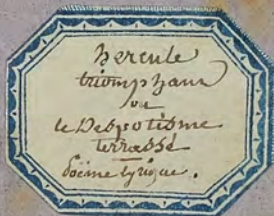 hercule
triomphant
ou
le Despotisme
terrassé
Poëme lyrique.